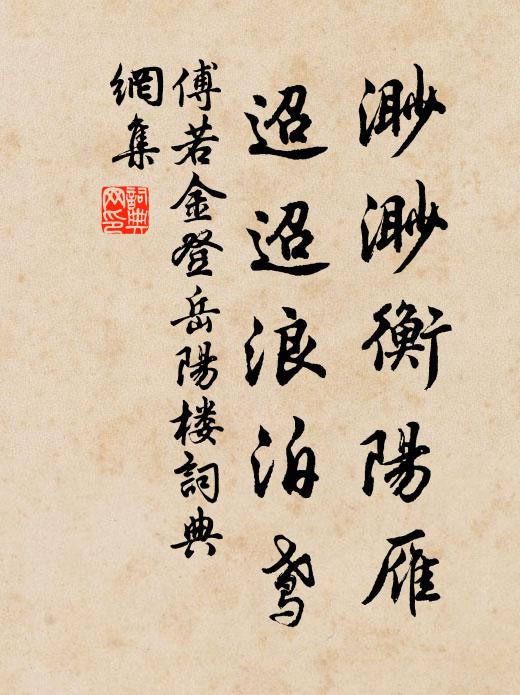 渺渺衡陽雁
迢迢浪泊鸢
傅若金登岳陽楼詞典
網集
詞典
网印